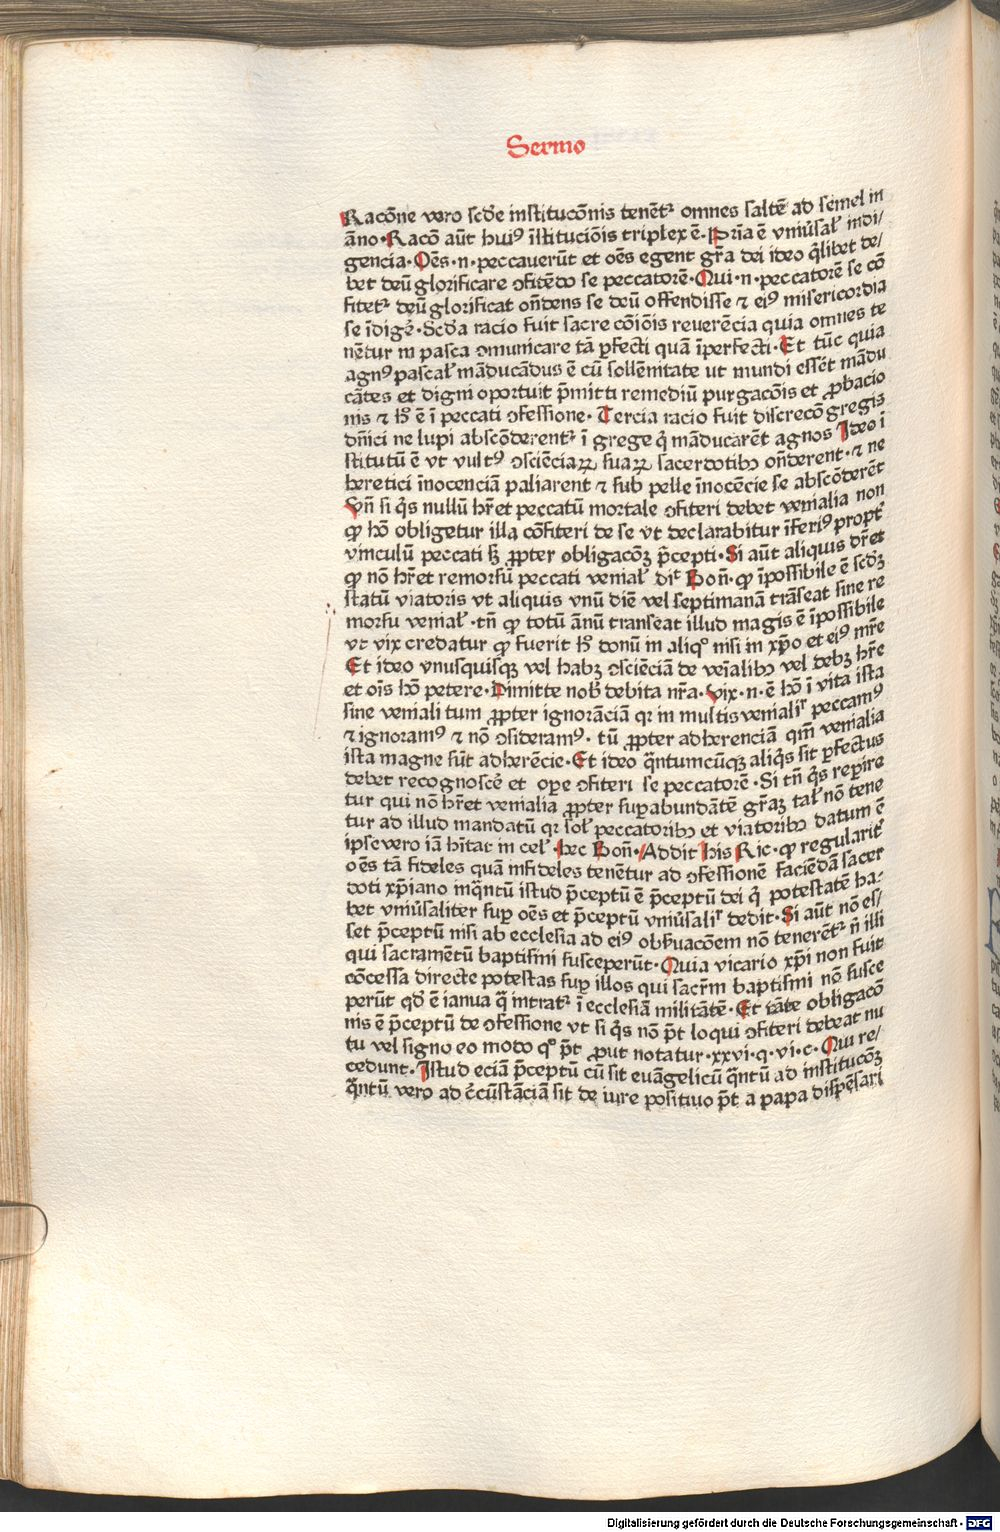 Sermo
Racōne vero scd̄e institucōnis tenēt᷒ omnes saltē ad semel in
āno·Racō aūt hui⁹ īstitucōis triplex ē·Pria ē vniu̇sal̄ indi/
gencia·Oēs·n·peccauerūt et oēs egent gr̄a dei ideo q̄libet de/
bet deū glorificare ɔfitēdo se peccatorē·Qui·n·peccatorē se cō
fitet᷒ deū glorificat on̄dens se deū offendisse ⁊ ei⁹ misericordia
se īdigē·Scd̄a racio fuit sacre cōiōis reuerēcia quia omnes te
nētur in pasca ɔmunicare tā ꝑfecti quā īperfecti·Et tūc quia
agn⁹ pascal̄ māducādus ē cū sollēnitate ut mundi essēt mādu
cātes et digni oportuit p̄mitti remediū purgacōis et ꝓbacio
nis ⁊ h̄ ē ī peccati ɔfessione·Tercia racio fuit discrecō gregis
dn̄ici ne lupi abscōderent᷒ ī grege q̇ māducarēt agnos Ideo ī
stitutū ē vt vult⁹ ɔsciēciaꝝ suaꝝ sacerdotibꝫ on̄derent·⁊ ne
heretici īnocenciā paliarent ⁊ sub pelle īnocēcie se abscōderēt
Vn̄ si q̇s nullū hr̄et peccatū mortale ɔfiteri debet venialia non
ꝙ hō obligetur illa cōfiteri de se vt declarabitur īferi⁹ propt̄
vinculū peccati sꝫ ꝓpter obligacōꝫ p̄cepti·Si aūt aliquis dr̄et
ꝙ nō hr̄et remorsū peccati venial̄ diᷓ Bon̄·ꝙ īpossibile ē scd̄ꝫ
statū viatoris vt aliquis vnū diē vel septimanā trāseat sine re
morsu venial̄·tn̄ ꝙ totū ānū transeat illud magis ē īpossibile
vt vix credatur ꝙ fuerit h̄ donū in aliqº nisi in xp̄o et ei⁹ mr̄e
Et ideo vnusquisqꝫ vel habꝫ ɔsciēciā de veīalibꝫ vel debꝫ hr̄e
et oīs hō petere·Dimitte nob̄ debita nr̄a·Vix·n·ē hō ī vita ista
sine veniali tum ꝓpter ignorāciā qr in multis venialiᷣ peccam⁹
⁊ ignoram⁹ ⁊ nō ɔsideram⁹·tū ꝓpter adherenciā qm̄ venialia
ista magne sūt adherēcie·Et ideo q̄ntumcūqꝫ aliq̇s sit ꝑfectus
debet recognoscē et oꝑe ɔfiteri se peccatorē·Si tn̄ q̇s reꝑire
tur qui nō hr̄et venialia ꝓpter suꝑabundātē gr̄aꝫ tal̄ nō tene
tur ad illud mandatū qr sol̄ peccatoribꝫ et viatoribꝫ datum ē
ipse vero iā h̄itat in cel̄·hec Bon̄·Addit his Ric·ꝙ regularit̄
oēs tā fideles quā infideles tenētur ad ɔfessionē faciēdā sacer
doti xp̄iano inq̄ntū istud p̄ceptū ē p̄ceptū dei q̇ potestatē ha·
bet vniu̇saliter suꝑ oēs et p̄ceptū vniu̇saliᷣ dedit·Si aūt nō es/
set p̄ceptū nisi ab ecclesia ad ei⁹ obẜuacōem nō tenerēt᷒ n̄ illi
qui sacramētū baptismi susceperūt·Quia vicario xp̄i non fuit
cōcessa directe potestas suꝑ illos qui sacrm̄ baptismi nō susce
perūt qd̄ ē ianua q̄ intrat᷒ ī ecclesiā militātē·Et tāte obligacō
nis ē p̄ceptū de ɔfessione vt si q̇s nō p̄t loqui ɔfiteri debeat nu
tu vel signo eo modo qº p̄t ꝓut notatur·xxvi·q·vi·c·Qui re/
cedunt·Istud eciā p̄ceptū cū sit euāgelicū q̄ntū ad institucōꝫ
q̄ntū vero ad ċcūstāciā sit de iure positiuo p̄t a papa dispēsari
Digitalisierung gefördert durch die Deutsche Forschungsgemeinschaft - DFG